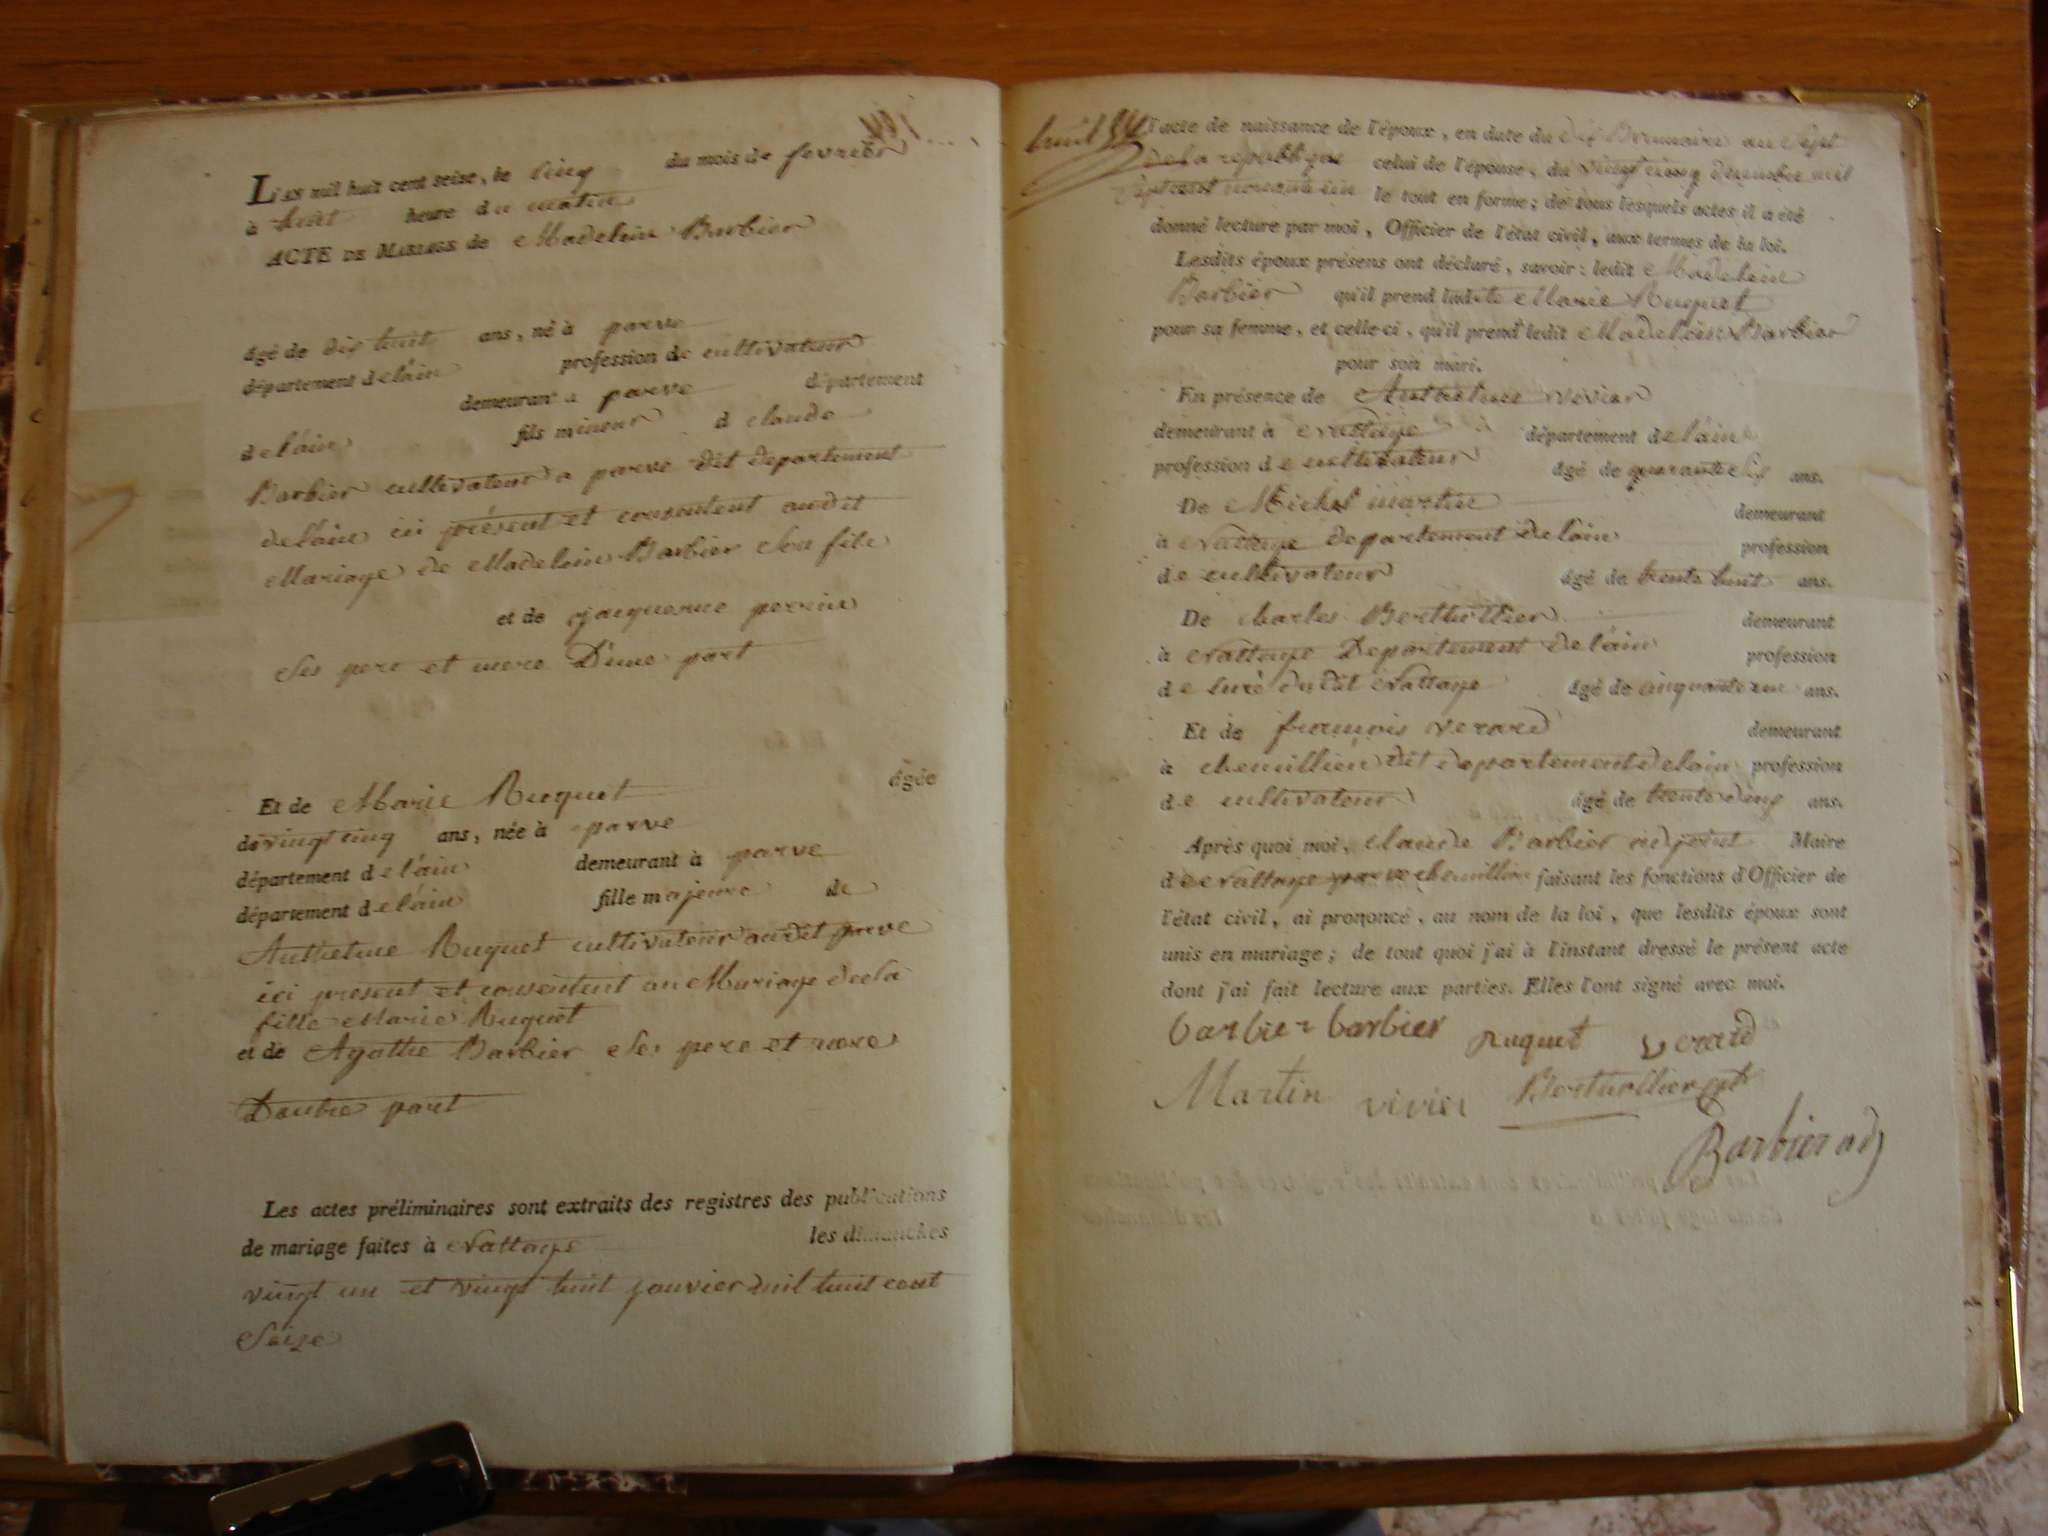 L'an mil huit cent seise, le cinq du mois de fevrier
à huit heure du matin
ACTE DE MARIAGE de Madelein Barbier
âgé de dix huit ans, né à parve
département delain profession de cultivateur
demeurant a parve département
delain fils mineur d claude
Barbier cultivateur a parve dit departement
delain ici présent et consentent audit
Mariage de Madelein Barbier Son fils
et de jacquemue perrin
Ses pere et mere D'une part
Et de Marie Ruquet âgée
de vingt cinq ans, née à parve
département delain demeurant à parve
département delain fille majeure de
Anthelme Ruquet cultivateur audit parve
ici present et consentent au Mariage de sa
fille Marie Ruquet
et de Agathe Barbier Ses pere et mere
Dautre part
Les actes préliminaires sont extraits des registres des publications
de mariage faites à nattage les dimanches
vingt un et vingt huit janvier mil huit cent
Seize
huit
l'acte de naissance de l'époux, en date du dix Brumaire an Sept
de la republique celui de l'épouse, du vingt cinq decembre mil
Sept cent le tout en forme; de tous lesquels actes il a été
donné lecture par moi, Officier de l'état civil, aux termes de la loi.
Lesdits époux présens ont déclaré, savoir: ledit Madelein
Barbier qu'il prend ladite Marie Ruquet
pour sa femme, et celle-ci, qu'il prend ledit Madelein Barbier
pour son mari.
En présence de Anthelme vivier
demeurant à nattage département delain
profession de cultivateur âgé de quarante Six ans.
De Michel martin demeurant
à nattage departement delain profession
de cultivateur âgé de trente huit ans.
De charles Berthellier demeurant
à nattage Departement delain profession
de curé dudit nattage âgé de cinquante un ans.
Et de francois verard demeurant
à chemillien dit departement delain profession
de cultivateur âgé de trente cinq ans.
Après quoi moi, claude Barbier adjoint Maire
de nattage parve chemillien faisant les fonctions d'Officier de
l'état civil, ai prononcé, au nom de la loi, que lesdits époux sont
unis en mariage; de tout quoi j'ai à l'instant dressé le présent acte
dont j'ai fait lecture aux parties. Elles l'ont signé avec moi.
barbier barbier Ruquet verard
Martin vivier
Barbier adj